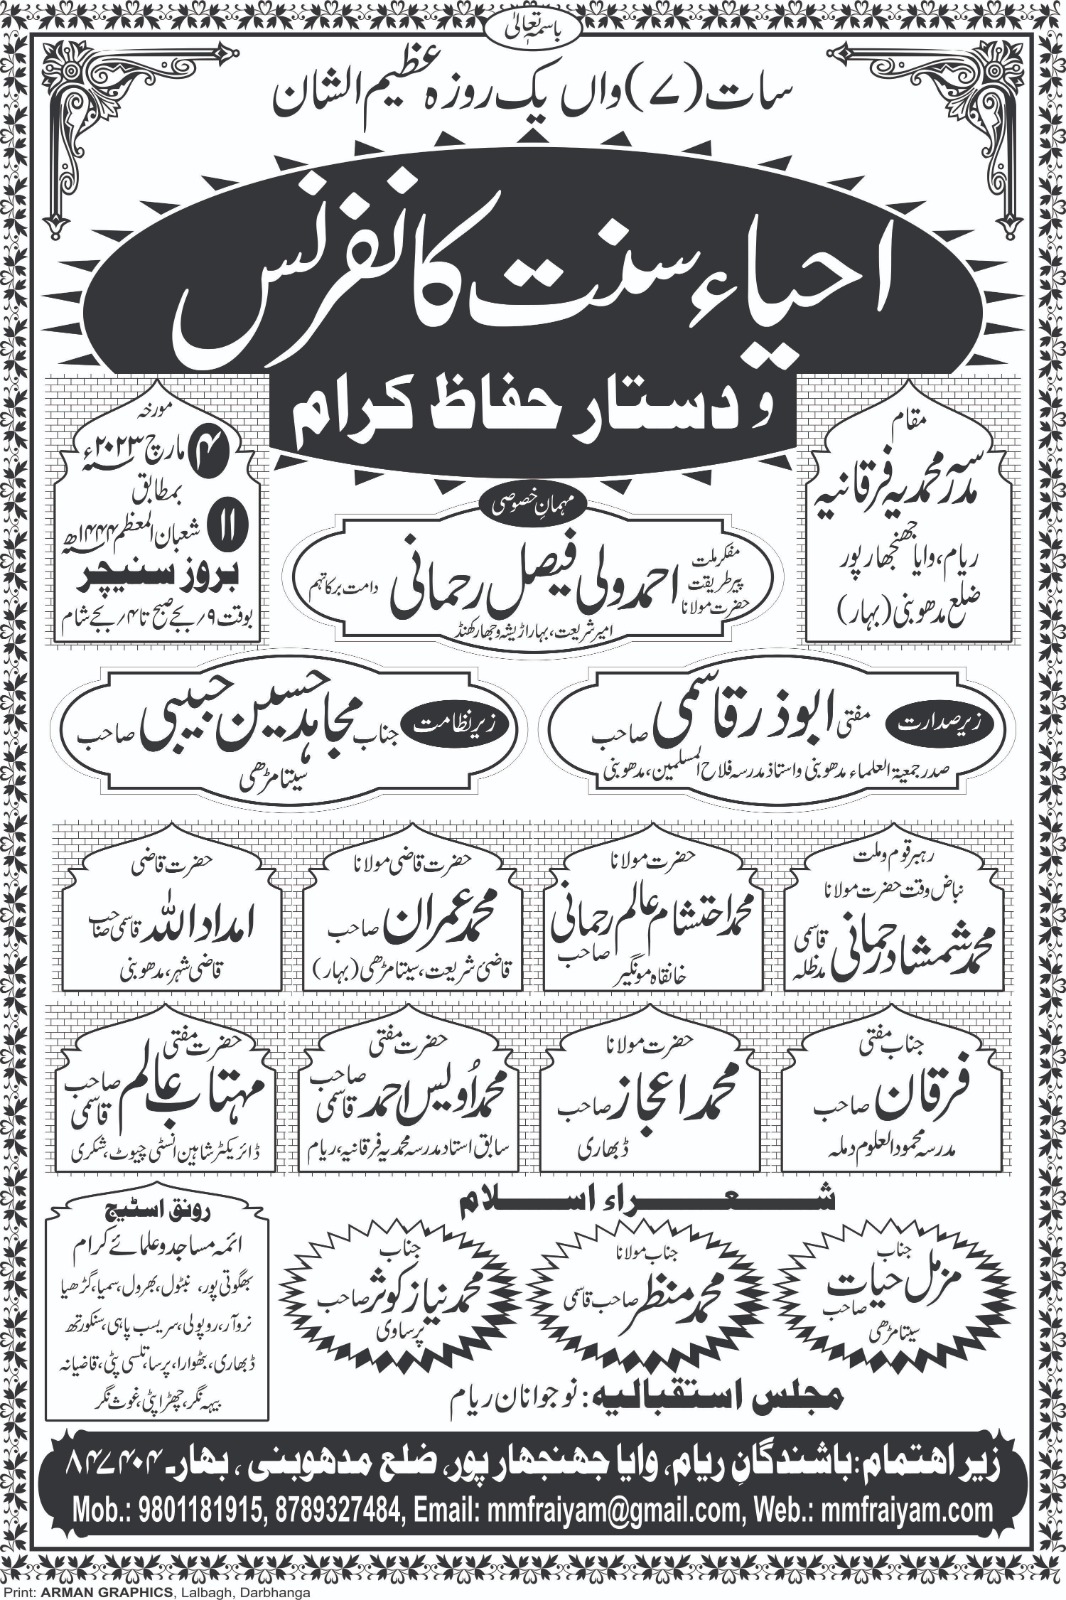 باسمہ تعالیٰ
سات (۷) واں یک روزہ عظیم الشان
احیاء سنت کانفرنس
و دستار حفاظ کرام
مقام
مدرسہ محمدیہ فرقانیہ
ریام، وایا جھنجھارپور
ضلع مدھوبنی (بہار)
مورخہ
۴ مارچ ۲۰۲۳ء
بمطابق
۱۱ شعبان المعظم ۱۴۴۴ھ
بروز سنیچر
بوقت ۹ ربجے صبح تا ۴ ربجے شام
مہمان خصوصی
مفکر ملت
پیر طریقت
حضرت مولانا احمد ولی فیصل رحمانی دامت برکاتہم
امیر شریعت، بہار اڑیشہ و جھارکھنڈ
زیر صدارت مفتی ابوذر قاسمی صاحب
صدر جمعیۃ العلماء مدھوبنی و استاذ مدرسہ فلاح المسلمین، مدھوبنی
زیر نظامت جناب مجاہد حسین حبیبی صاحب
سیتامڑھی
رہبر قوم و ملت
نباض وقت حضرت مولانا
محمد شمشاد رحمانی قاسمی مدظلہ
حضرت مولانا
محمد احتشام عالم رحمانی صاحب
خانقاہ مونگیر
حضرت قاضی مولانا
محمد عمران صاحب
قاضئ شریعت، سیتامڑھی (بہار)
حضرت قاضی
امداد اللہ قاسمی صاحب
قاضی شہر، مدھوبنی
جناب مفتی
فرقان صاحب
مدرسہ محمود العلوم دملہ
حضرت مولانا
محمد اعجاز صاحب
ڈبھاری
حضرت مفتی
محمد اُویس احمد صاحب قاسمی
سابق استاد مدرسہ محمدیہ فرقانیہ، ریام
حضرت مفتی
مہتاب عالم صاحب قاسمی
ڈائریکٹر شاہین انسٹی چیوٹ، شکری
شعراء اسلام
جناب
مزمل حیات صاحب
سیتامڑھی
جناب مولانا
محمد منظر صاحب قاسمی
جناب
محمد نیاز کوثر صاحب
پرساوی
رونق اسٹیج
ائمہ مساجد و علمائے کرام
بھگوتی پور، نبٹول، بھرول، سمیا، گڑھیا
نروآر، روپولی، سریسب پاہی، سنکورتھ
ڈبھاری، بٹھوارا، پرسا، تلسی پٹی، قاضیانہ
بیہہ نگر، چھڑاپٹی، غوث نگر
مجلس استقبالیہ: نوجوانان ریام
زیر اہتمام: باشندگانِ ریام، وایا جھنجھارپور، ضلع مدھوبنی، بہار۔ ۸۴۷۴۰۴
Mob.: 9801181915, 8789327484, Email: mmfraiyam@gmail.com, Web.: mmfraiyam.com
Print: ARMAN GRAPHICS, Lalbagh, Darbhanga